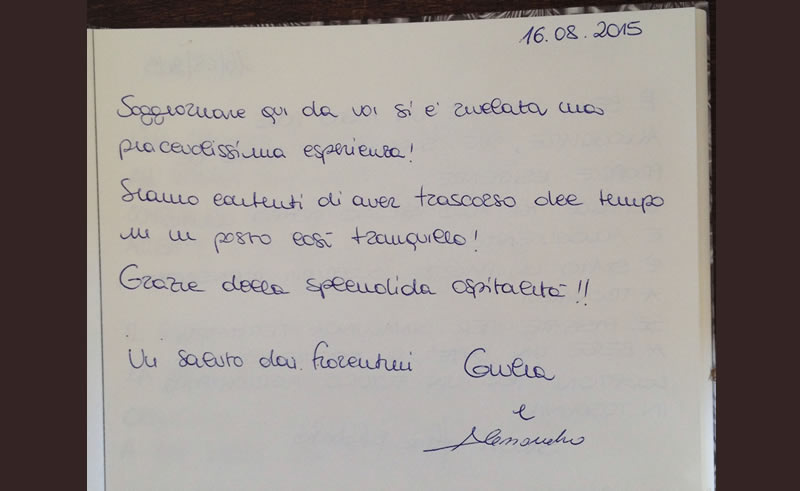 16.08.2015
Soggiornare qui da voi si è rivelata una
piacevolissima esperienza!
Siamo contenti di aver trascorso del tempo
in un posto così tranquillo!
Grazie della splendida ospitalità!!
Un saluto dai fiorentini Giulia
e
Alessandro